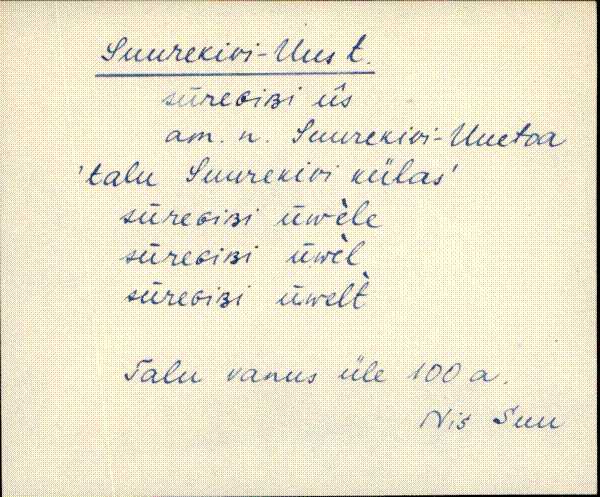 Suurekivi-Uus t.
sūreɢiʙi ūs
am. n. Suurekivi-Uuetoa
'talu Suurekivi külas'
sūreɢiʙi ūwèle
sūreɢiʙi ūwèl
sūreɢiʙi ūwelt̀
Talu vanus üle 100 a.
Nis Suu